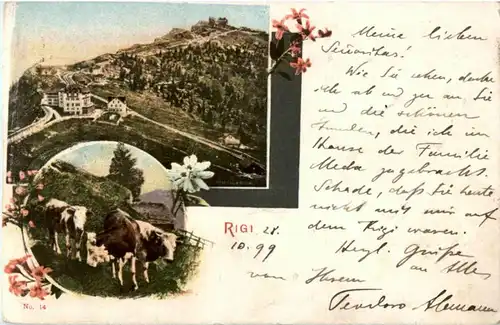 Meine lieben
Señoritas!
Wie Sie sehen, denke
ich ab und zu an Sie
und die schönen
Stunden, die ich im
Hause der Familie
Meda zugebracht.
Schade, daß Sie heute
nicht mit mir auf
dem Rigi waren.
Herzl. Grüße
an Alle
von Ihrem
Teodoro Alemann
RIGI. 28.
10.99
No. 14